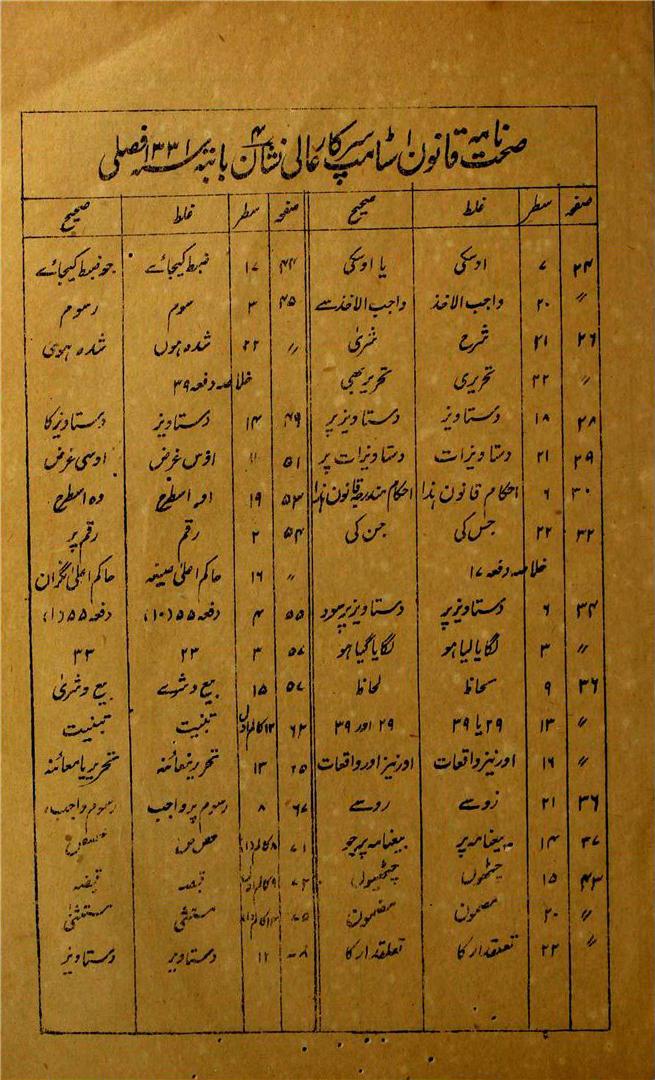 صحت نامہ قانون اسٹامپ سرکار عالی نشان ۴ بابتہ سنہ ۱۳۳۱ فصلی
صفحہ سطر غلط صحیح صفحہ سطر غلط صحیح
۲۴ ۷ اوسکی یا اوسکی ۴۴ ۱۷ ضبط کیجائے جو ضبط کیجائے
〃 ۲۰ واجب الاخذ واجب الاخذ سے ۴۵ ۳ سوم رسوم
۲۶ ۲۱ شرح شریٰ 〃 ۲۲ شدہ ہوں شدہ ہوی
〃 ۲۲ تحریری تحریر بھی خلاصہ دفعہ ۳۹
۲۸ ۱۸ دستاویز دستاویز پر ۴۹ ۱۴ دستاویز دستاویز کا
۲۹ ۲۱ دستاویزات دستاویزات پر ۵۱ ۱۱ اوس غرض اوسی غرض
۳۰ ۶ احکام قانون ہذا احکام مندرجہ قانون ہذا ۵۳ ۱۹ اوہ اسطرح وہ اسطرح
۳۲ ۲۲ جس کی جن کی ۵۴ ۲ رقم رقم پر
خلاصہ دفعہ ۱۷ 〃 ۱۶ حاکم اعلیٰ صیغہ حاکم اعلیٰ نگران
۳۴ ۶ دستاویز پر دستاویز پر ۵۵ ۴ دفعہ ۵۵ (۱۰) دفعہ ۵۵ (۱)
〃 ۳ لگایا لیا ہو لگایا گیا ہو ۵۷ ۳ ۲۳ ۳۳
۳۶ ۹ سحاظ لحاظ ۵۷ ۱۵ بیع و شرے بیع و شریٰ
〃 ۱۳ ۲۹ یا ۳۹ ۲۹ اور ۳۹ ۶۳ ۱۲ کالم تبنیت تبنیت
〃 ۱۶ اور نیز واقعات اور نیز اور واقعات ۶۵ ۱۳ تحریر معائنہ تحریر یا معائنہ
۳۶ ۲۱ زوسے روسے ۶۷ ۸ رسوم پر واجب رسوم واجب
۳۷ ۱۴ بیغنامہ پر بیغنامہ پر جو ۷۱ ۸ کالم
۴۳ ۱۵ چٹھوں چٹھیوں ۹ کالم قبصہ قبضہ
〃 ۲۰ مصمون مضمون کالم مستشی مستثنیٰ
〃 ۲۲ تعتقدار کا تعلقدار کا ۱۲ دستاویر دستاویز